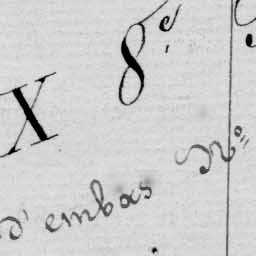 X 8.e
d'embas N.o